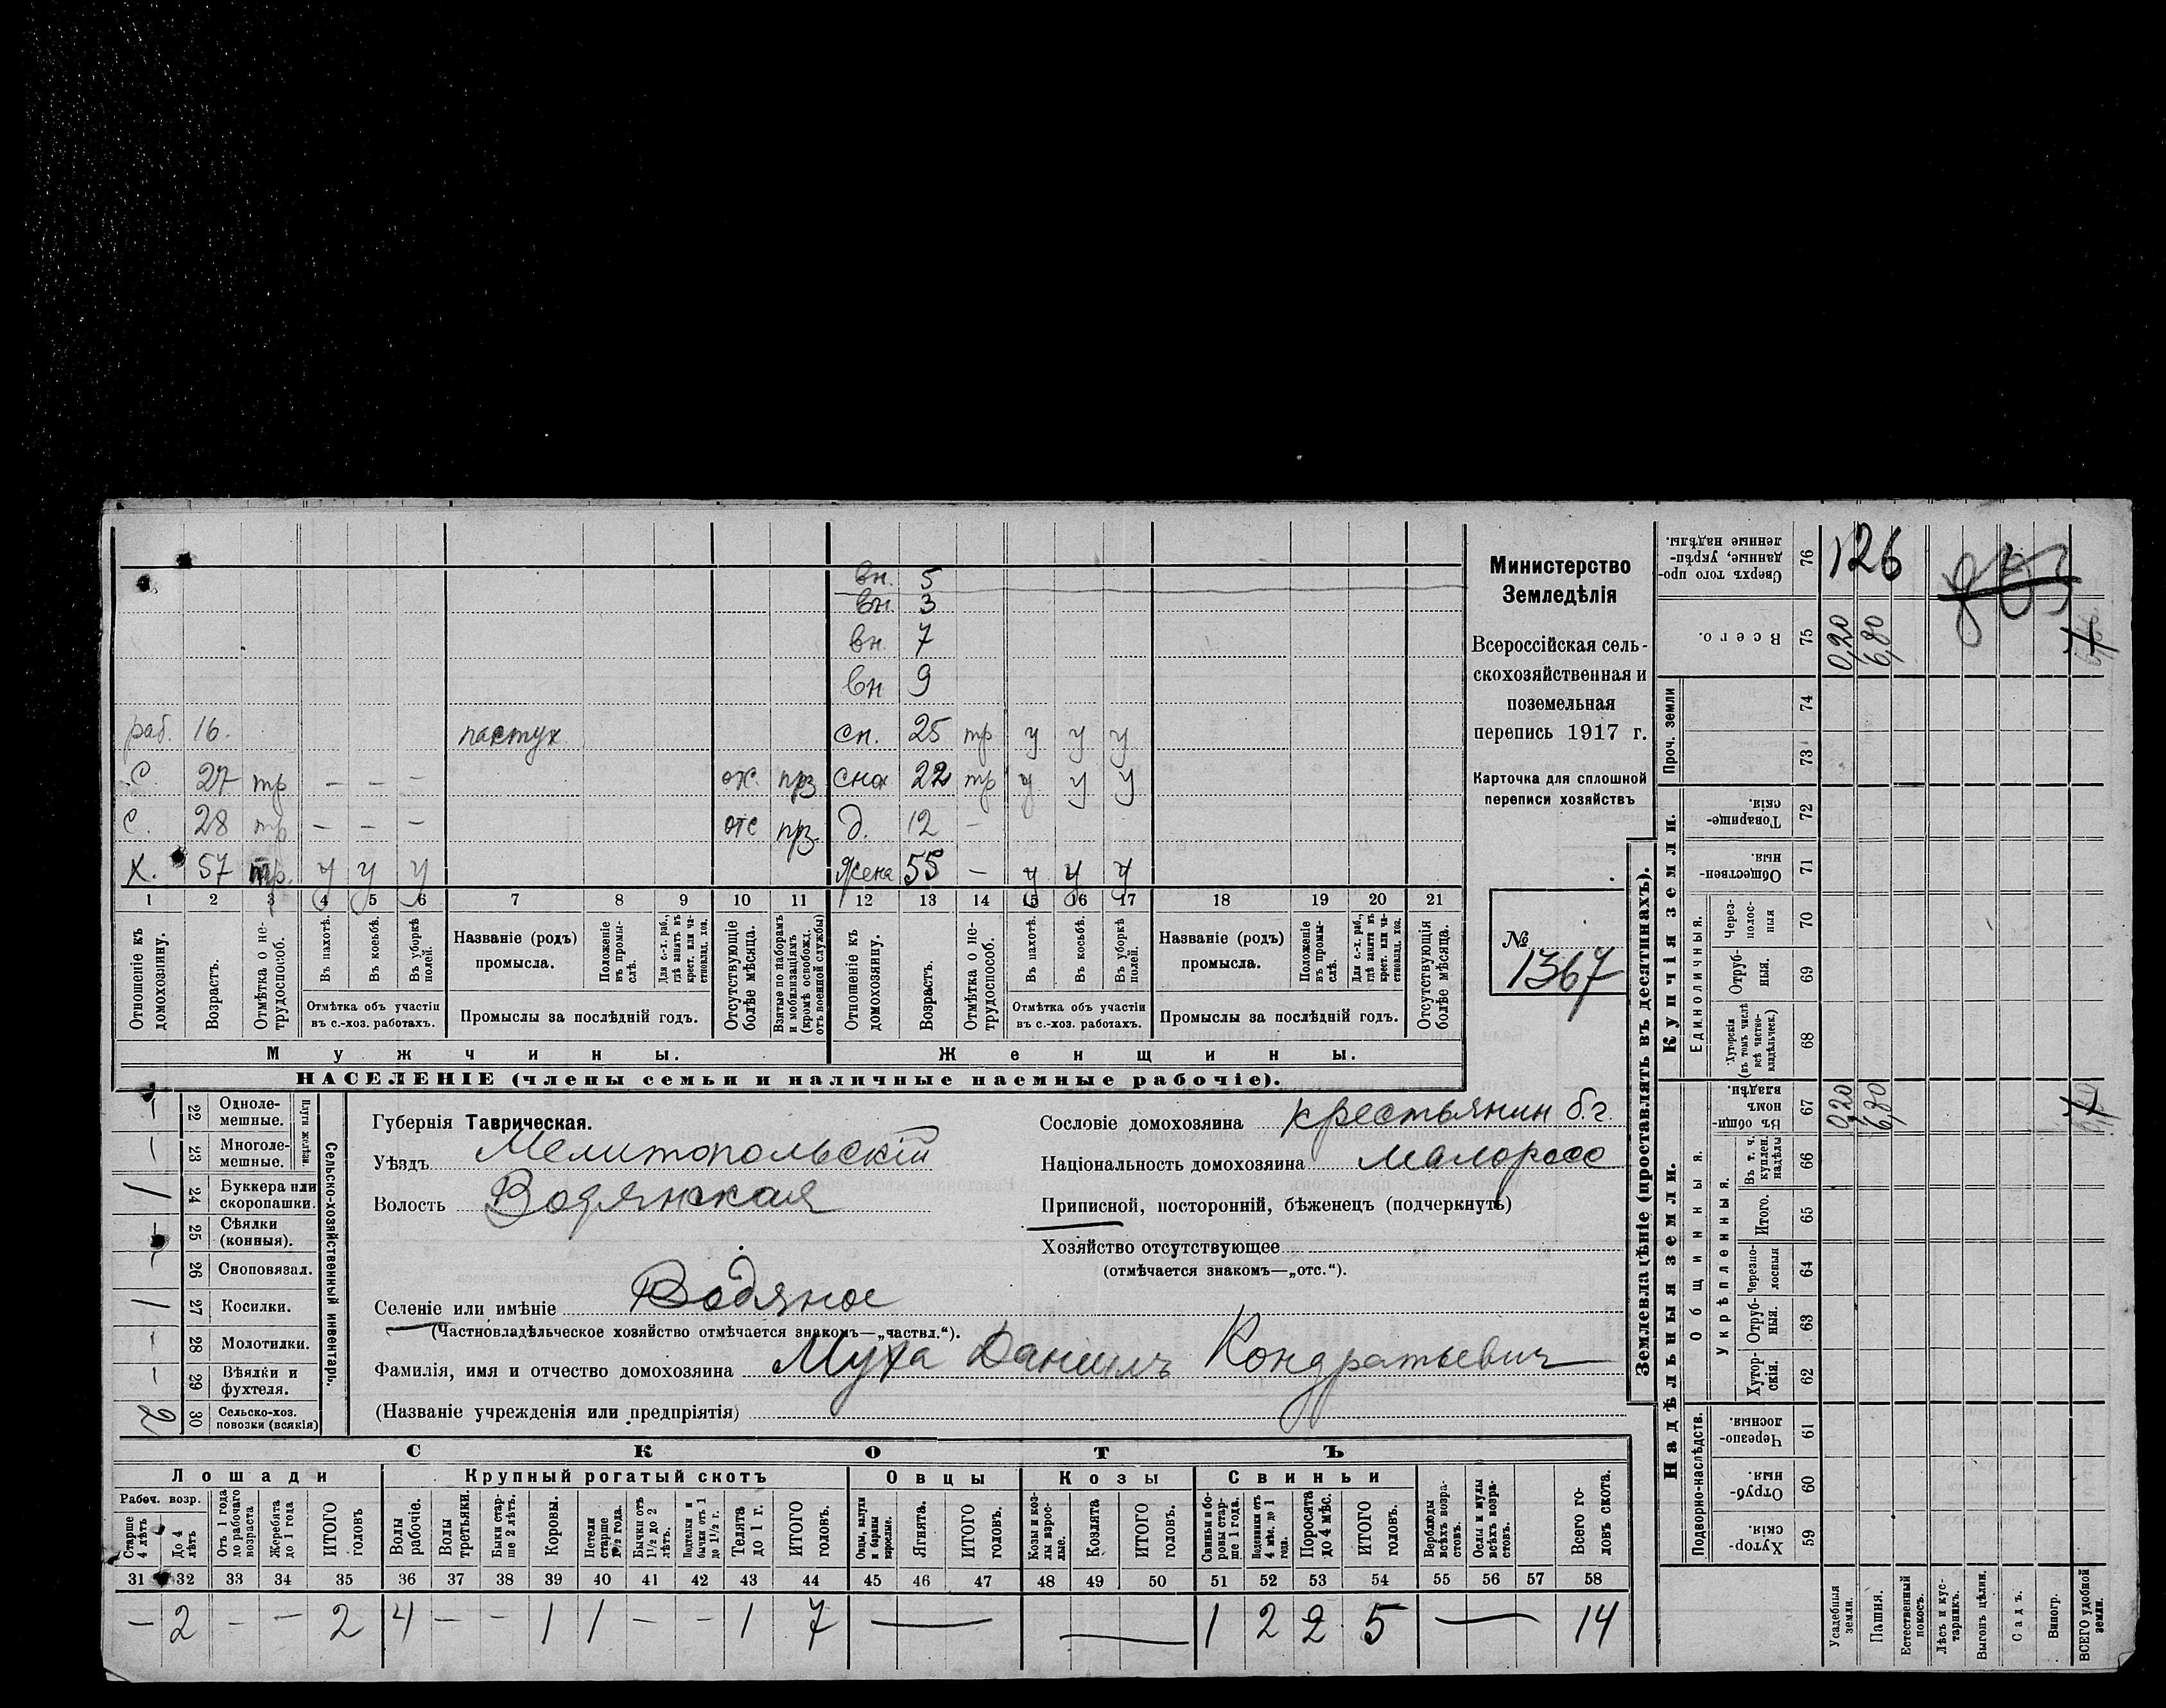 вн. 5
вн. 3
вн. 7
вн 9
раб. 16. пастух сп. 25 тр у у у
С. 27 тр — — — отс. прз сна 22 тр у у у
С. 28 тр — — — отс прз. д. 12 —
Х. 57 тр. у у у жена 55 — у у у
1 2 3 4 5 6 7 8 9 10 11 12 13 14 15 16 17 18 19 20 21
Отношеніе къ домохозяину.
Возрастъ.
Отмѣтка о нетрудоспособ.
Въ пахотѣ.
Въ косьбѣ.
Въ уборкѣ полей.
Отмѣтка объ участіи въ с.-хоз. работахъ.
Названіе (родъ) промысла.
Положеніе въ промыслѣ.
Для с.-х. раб., гдѣ занятъ въ крест. или частновлад. хоз.
Промыслы за послѣдній годъ.
Отсутствующіе болѣе мѣсяца.
Взятые по наборамъ и мобилизаціямъ (кромѣ освобожд. отъ военной службы)
Отношеніе къ домохозяину.
Возрастъ.
Отмѣтка о нетрудоспособ.
Въ пахотѣ.
Въ косьбѣ.
Въ уборкѣ полей.
Отмѣтка объ участіи въ с.-хоз. работахъ.
Названіе (родъ) промысла.
Положеніе въ промыслѣ.
Для с.-х. раб., гдѣ занята въ крест. или частновлад. хоз.
Промыслы за послѣдній годъ.
Отсутствующія болѣе мѣсяца.
Мужчины. Женщины.
НАСЕЛЕНІЕ (члены семьи и наличные наемные рабочіе).
Министерство
Земледѣлія
Всероссійская сель-
скохозяйственная и
поземельная
перепись 1917 г.
Карточка для сплошной
переписи хозяйствъ
№
1367
— 22 Однолемешные.
— 23 Многолемешные.
Плуги желѣзн.
1 24 Буккера или скоропашки.
— 25 Сѣялки (конныя).
— 26 Сноповязал.
1 27 Косилки.
— 28 Молотилки.
— 29 Вѣялки и фухтеля.
2 30 Сельско-хоз. повозки (всякія)
Сельско-хозяйственный инвентарь.
Губернія Таврическая.
Уѣздъ Мелитопольскій
Волость Водянская
Селеніе или имѣніе Водяное
(Частновладѣльческое хозяйство отмѣчается знакомъ—„частвл.“).
Фамилія, имя и отчество домохозяина Муха Даниилъ Кондратьевич
(Названіе учрежденія или предпріятія)
Сословіе домохозяина крестьянин б.г.
Національность домохозяина малоросс
Приписной, посторонній, бѣженецъ (подчеркнуть)
Хозяйство отсутствующее
(отмѣчается знакомъ—„отс.“).
СКОТЪ
Лошади Крупный рогатый скотъ Овцы Козы Свиньи
Рабоч. возр.
Старше 4 лѣтъ
До 4 лѣтъ
Отъ 1 года до рабочаго возраста
Жеребята до 1 года
ИТОГО головъ
Волы рабочіе.
Волы третьяки.
Быки старше 2 лѣтъ.
Коровы.
Нетели старше 1½ года.
Бычки отъ 1½ до 2 лѣтъ.
Подтелки и бычки отъ 1 до 1½ г.
Телята до 1 г.
ИТОГО головъ.
Овцы, валухи и бараны взрослые.
Ягнята.
ИТОГО головъ.
Козы и козлы взрослые.
Козлята
ИТОГО головъ.
Свиньи и боровы старше 1 года.
Подсвинки отъ 4 мѣс. до 1 года.
Поросята до 4 мѣс.
ИТОГО головъ.
Верблюды всѣхъ возрастовъ.
Ослы и мулы всѣхъ возрастовъ.
Всего головъ скота.
31 32 33 34 35 36 37 38 39 40 41 42 43 44 45 46 47 48 49 50 51 52 53 54 55 56 57 58
— 2 — — 2 4 — — 1 1 — — 1 7 — — 1 2 2 5 — 14
Землевладѣніе (проставлять въ десятинахъ).
Сверхъ того проданные, укрѣпленные надѣлы. 76 126
Всего. 75 0,20 6,80
Проч. земли 74
73
Купчія земли.
Товарищескія. 72
Общественныя. 71
Единоличныя.
Черезполосныя 70
Отрубныя. 69
Хуторскія (въ томъ числѣ всѣ частновладѣльческ.) 68
Надѣльныя земли.
Общинныя.
Въ общинномъ владѣн. 67 0,20 6,80
Укрѣпленныя.
Въ т. ч. куплен. надѣлы 66
Итого. 65
Черезполосныя 64
Отрубныя. 63
Хуторскія. 62
Подворно-наслѣдств.
Черезполосныя. 61
Отрубныя. 60
Хуторскія. 59
Усадебныя земли.
Пашня.
Естественный покосъ.
Лѣсъ и кустарникъ.
Выгонъ цѣлин.
Садъ.
Виногр.
ВСЕГО удобной земли.